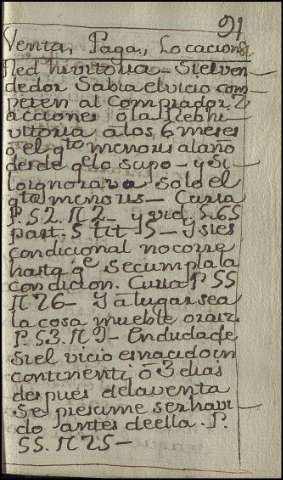 91
Venta, Paga, Locacion &
Red hivitoria – Si el ven
dedor Sabia el vicio com
peten al Comprador 2
acciones o la Redhi
vitoria a los 6 meses
o el qto menoris al año
desde qe lo supo – y Si
lo ignorava Solo el
qto menoris – Curia
P. 52. N 2 – y vid. L 65
part. 5 tit 5 – Y si es
condicional no corre
hasta qe Se cumpla la
condicion. Curia P 55
N 26 – Y a lugar sea
la cosa mueble o raiz
P. 53. N 9 – En duda de
Si el vicio es nacido in
continenti o 3 dias
despues de la venta
Se presume ser havi
do antes de ella. P.
55. N 25 –